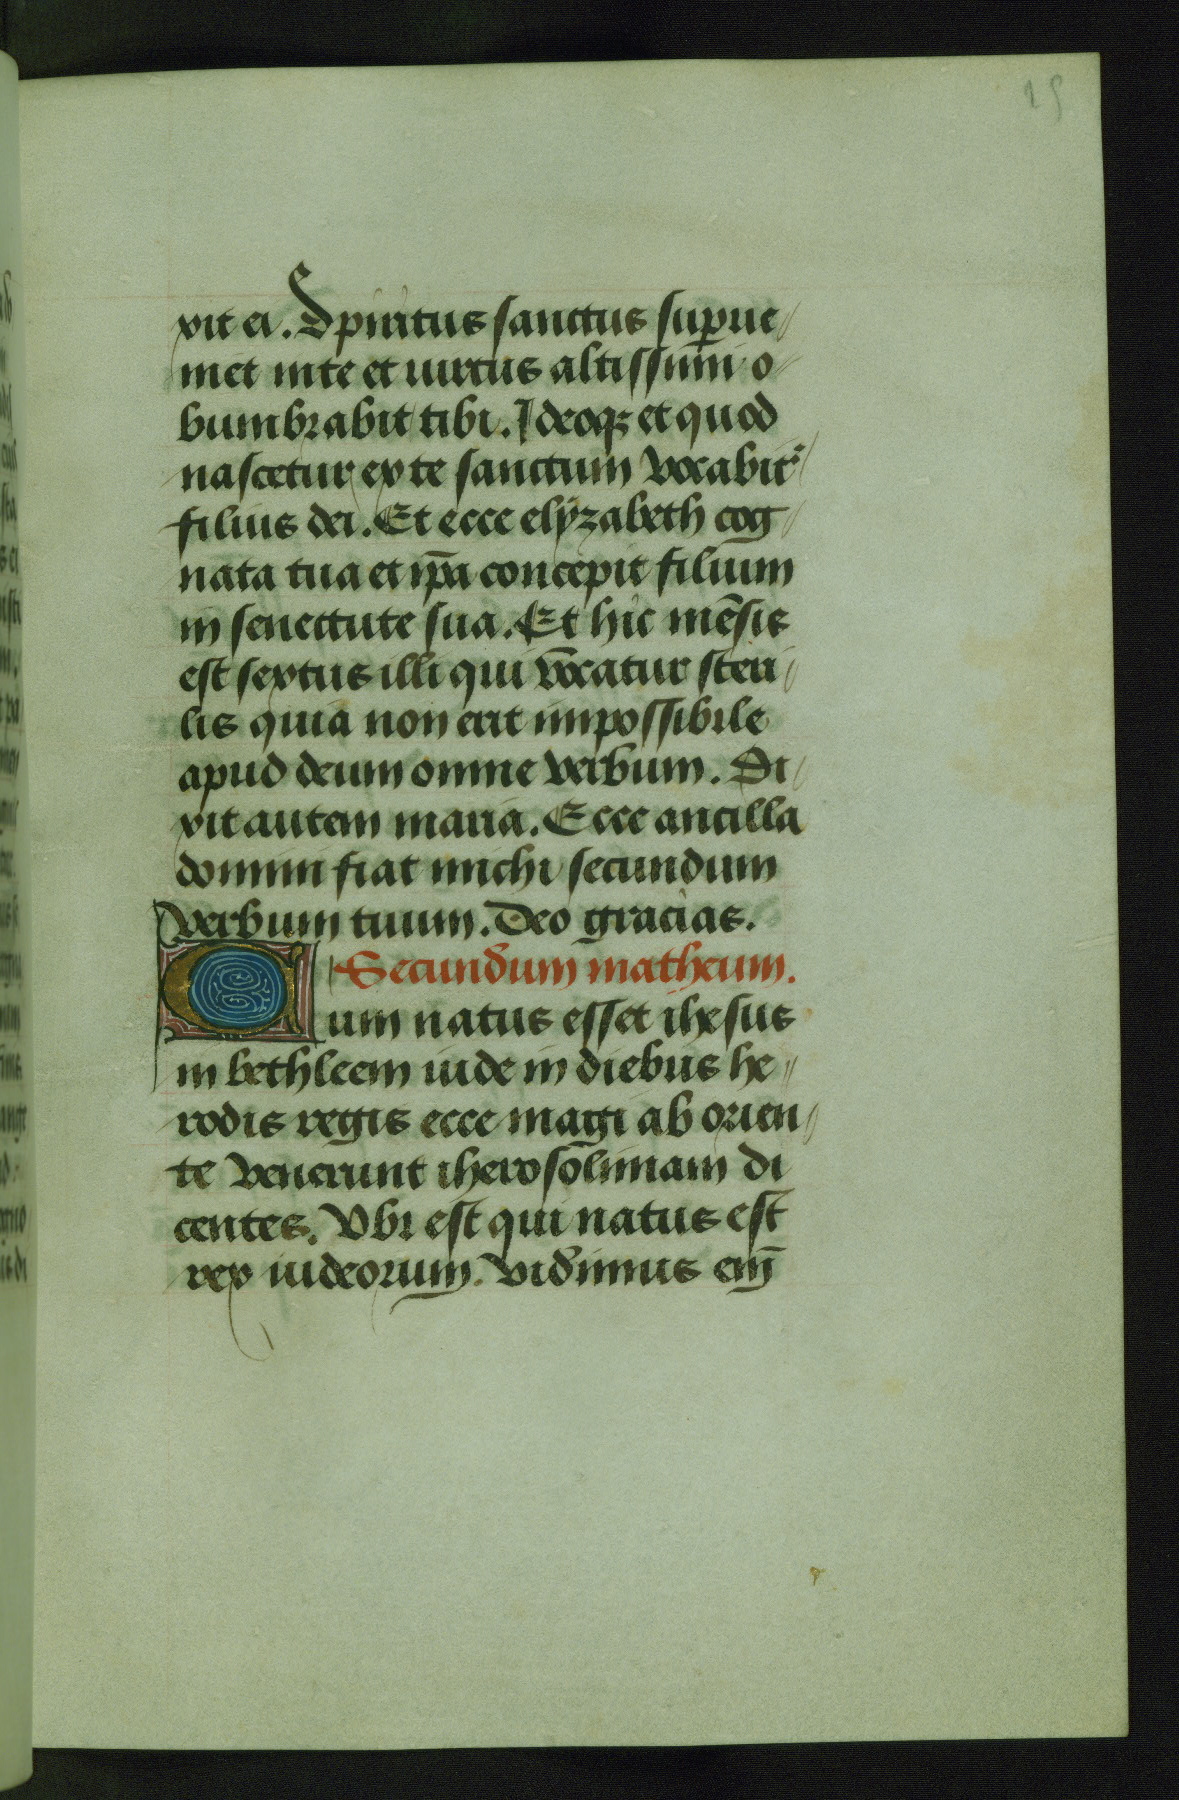 15
xit ei. Spiritus sanctus sup̲ue
niet in te et uirtus altissimi o
bumbrabit tibi. Ideoqꝫ et quod
nascetur ex te sanctum vocabit᷑
filius dei. Et ecce elÿzabeth cog
nata tua et ip̄a concepit filium
in senectute sua. Et hic mēsis
est sextus illi qui vocatur steri
lis quia non erit impossibile
apud deum omne verbum. Di
xit autem maria. Ecce ancilla
domini fiat michi secundum
verbum tuum. Deo gracias.
Secundum matheum.
Cum natus esset ihesus
in bethleem iude in diebus he
rodis regis ecce magi ab orien
te venerunt iherosolimam di
centes. Vbi est qui natus est
rex iudeorum. vidimus em̄